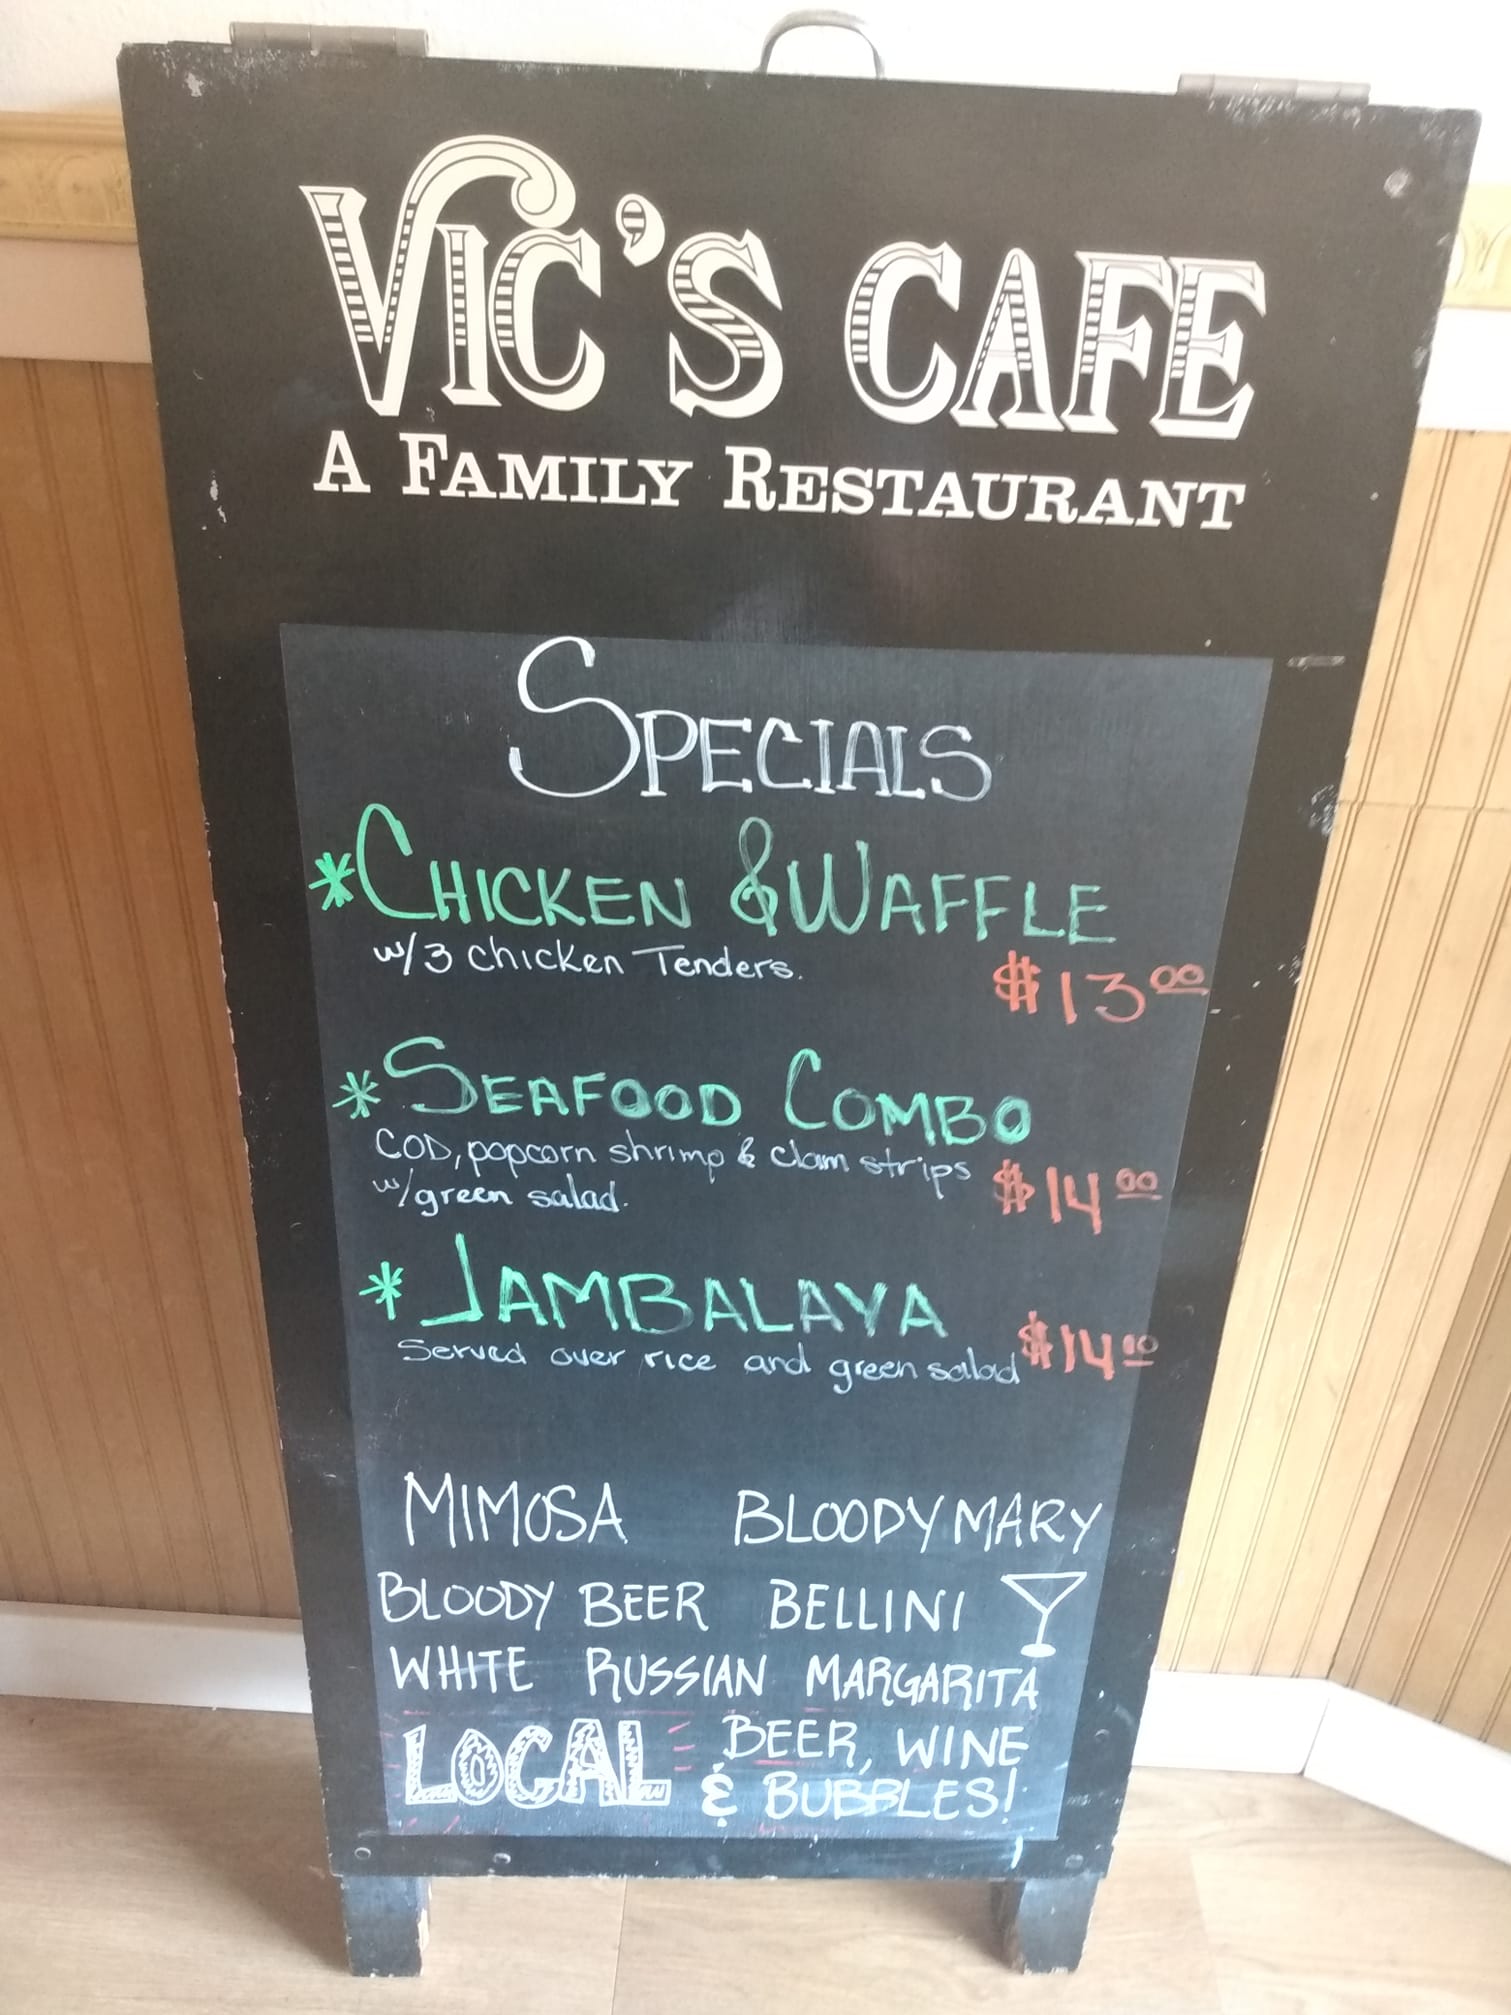 VIC'S CAFE
A FAMILY RESTAURANT
SPECIALS
*CHICKEN & WAFFLE
w/3 chicken Tenders.
$13.00
*SEAFOOD COMBO
COD, popcorn shrimp & clam strips
w/green salad.
$14.00
*JAMBALAYA
Served over rice and green salad $14.00
MIMOSA BLOODY MARY
BLOODY BEER BELLINI
WHITE RUSSIAN MARGARITA
LOCAL BEER, WINE
& BUBBLES!